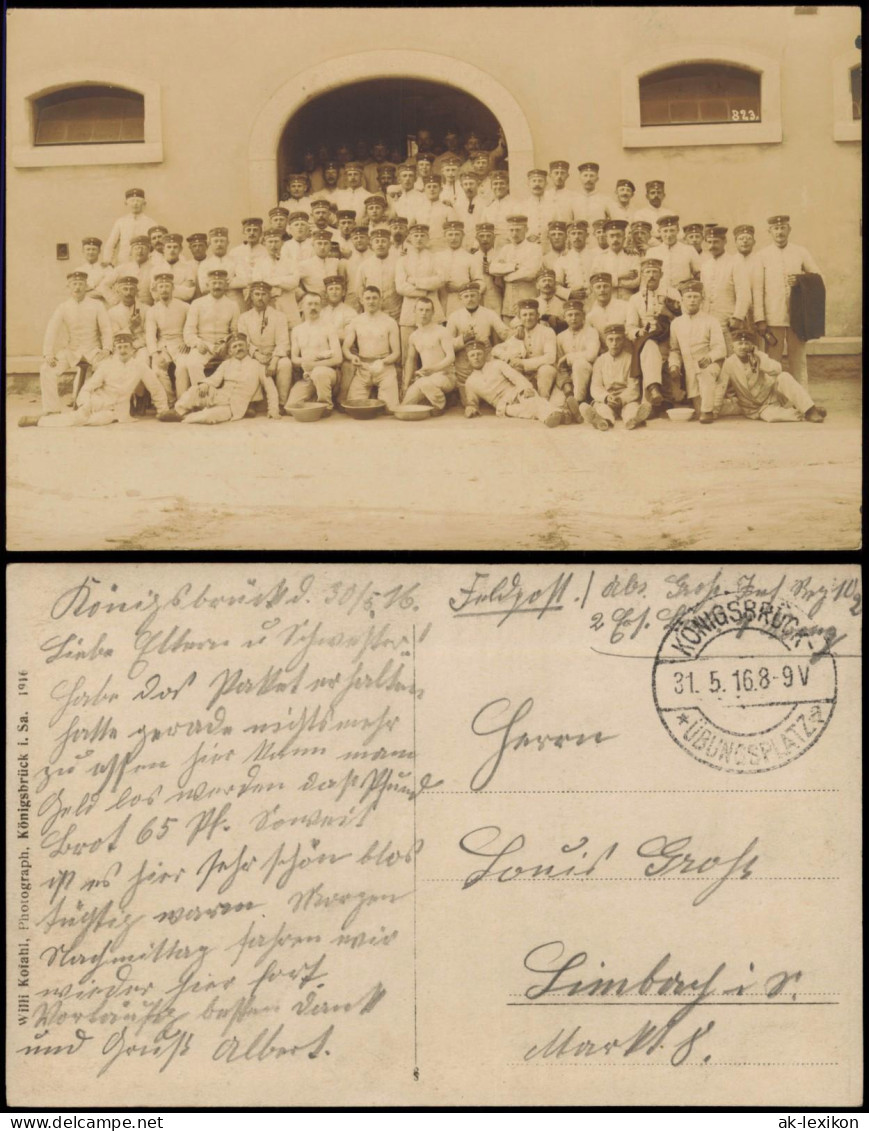 823.
Königsbrück d. 30/5 16.
Liebe Eltern u Schwester!
Habe das Paket erhalten
hatte gerade nichts mehr
zu essen hier kann man
Geld los werden das Pfund
Brot 65 Pf. Soweit
ist es hier sehr schön blos
tüchtig waren Morgen
Nachmittag fahren wir
wieder hier fort
Vorläufig besten Dank
und Gruß Albert.
Willi Kofahl, Photograph, Königsbrück i. Sa. 1916
Feldpost. Abs. Groh. Inf Reg 102
2
KÖNIGSBRÜCK
31. 5. 16. 8-9V
* ÜBUNGSPLATZ a
Herrn
Louis Groh
Limbach i. S.
Markt 8.
8
ak-lexikon